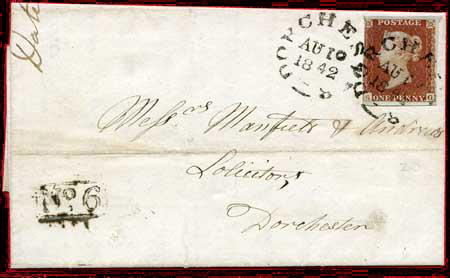 Date
DORCHESTER
AU 10
1842
POSTAGE
ONE PENNY
DORCHESTER
AU
18
Messrs Manfield & Andrews
Solicitors
Dorchester
No. 6